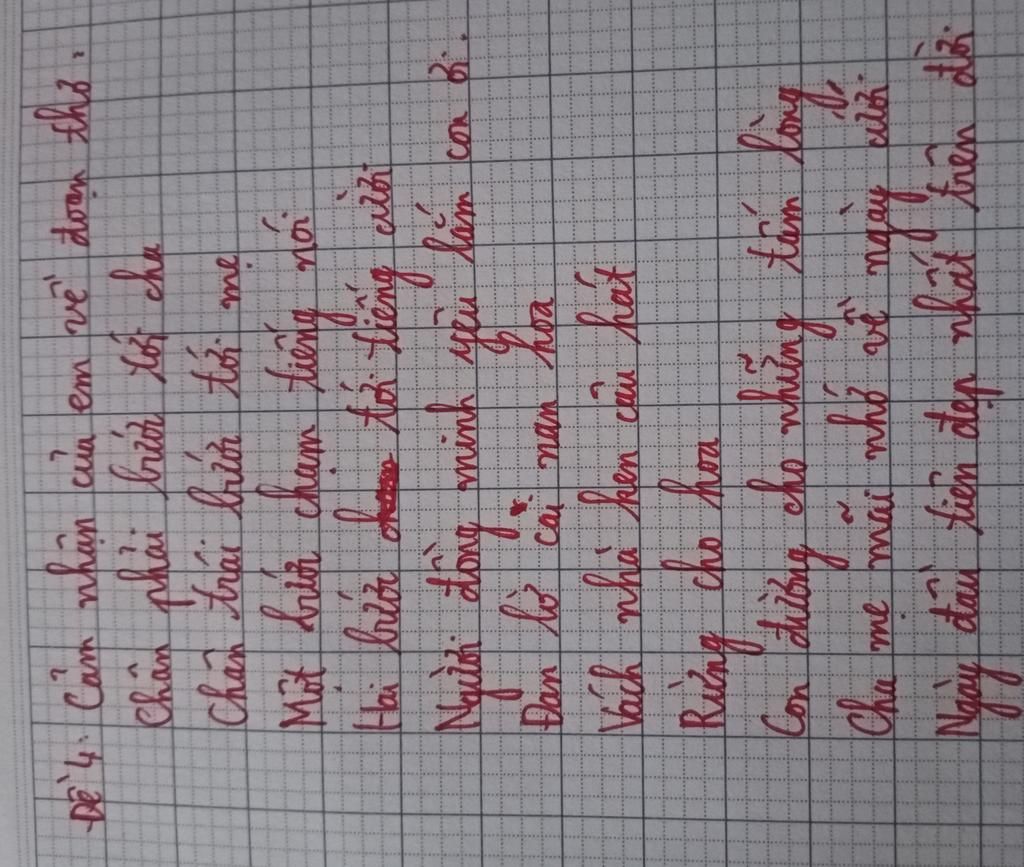 Đề 4: Cảm nhận của em về đoạn thơ:
Chân phải bước tới cha
Chân trái bước tới mẹ
Một bước chạm tiếng nói
Hai bước tới tiếng cười.
Người đồng mình yêu lắm con ơi.
Đan lờ cài nan hoa
Vách nhà ken câu hát
Rừng cho hoa
Con đường cho những tấm lòng
Cha mẹ mãi nhớ về ngày cưới.
Ngày đầu tiên đẹp nhất trên đời